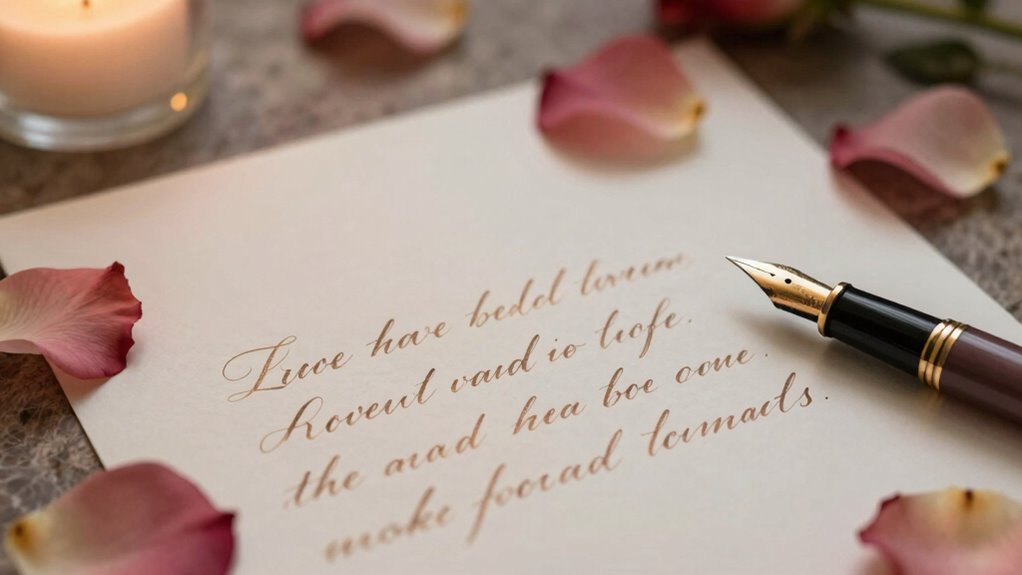 Luce have bedd lovum
hovent vand io liofe.
the avad hea boe oone.
moke foorad tcumadts.